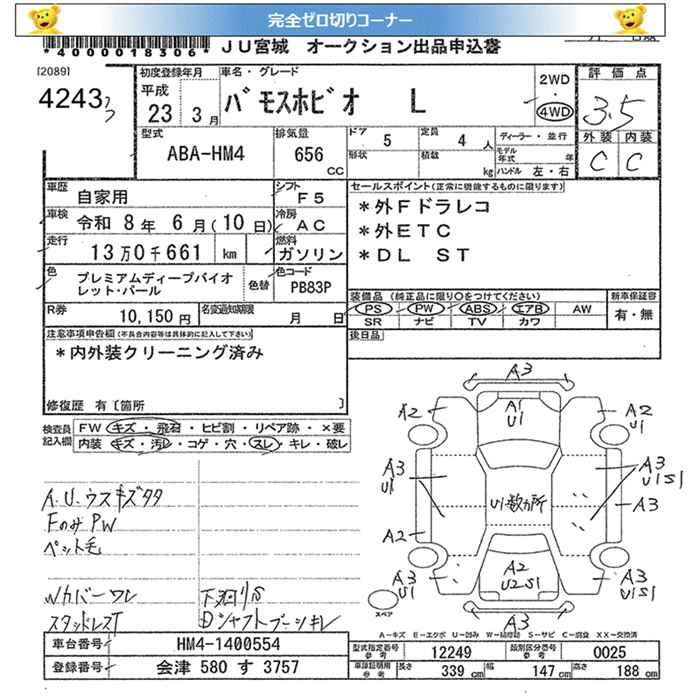 完全ゼロ切りコーナー
*4000018306*
JU宮城 オークション出品申込書
[2089]
4243
初度登録年月
平成
23 3月
車名・グレード
バモスホビオ L
2WD
・
4WD
評価点
3.5
外装 内装
C C
型式
ABA-HM4
排気量
656
CC
ドア 5
定員 4 人
形状
積載 kg
ディーラー・並行
モデル年式 年
ハンドル 左・右
車歴
自家用
シフト
F5
車検
令和 8年 6月(10日)
冷房
AC
走行
13万0千661 km
燃料
ガソリン
色
プレミアムディープバイオ
レット・パール
色替
色コード
PB83P
R券
10,150円
名変通知期限
月 日
セールスポイント(正常に機能するものに限ります)
*外Fドラレコ
*外ETC
*DL ST
装備品(純正品に限り○をつけてください)
PS PW ABS エアB AW
SR ナビ TV カワ
新車保証書
有・無
後日品
注意事項申告欄(不具合内容等は具体的に記入して下さい)
*内外装クリーニング済み
修復歴 有〔箇所 〕
検査員
記入欄
FW キズ・飛石・ヒビ割・リペア跡・×要
内装 キズ・汚レ・コゲ・穴・スレ・キレ・破レ
A.U.ウスキズタタ
FのみPW
ペット毛
Wカバーワレ
スタッドレスT
下廻リS
Dシャフトブーツキレ
A3
A2
A1
U1
A2
U1
A3
U1
A3
U1S1
U1数カ所
A3
A2
A3
U1
A2
U2S1
A3
U1S1
A3
スペア
A-キズ E-エクボ U-凹み W-補修跡 S-サビ C-腐食 XX-交換済
車台番号
HM4-1400554
登録番号
会津 580 す 3757
型式指定番号
参考
12249
類別区分番号
参考
0025
車庫証明用
参考
長さ 339 cm
幅 147 cm
高さ 188 cm